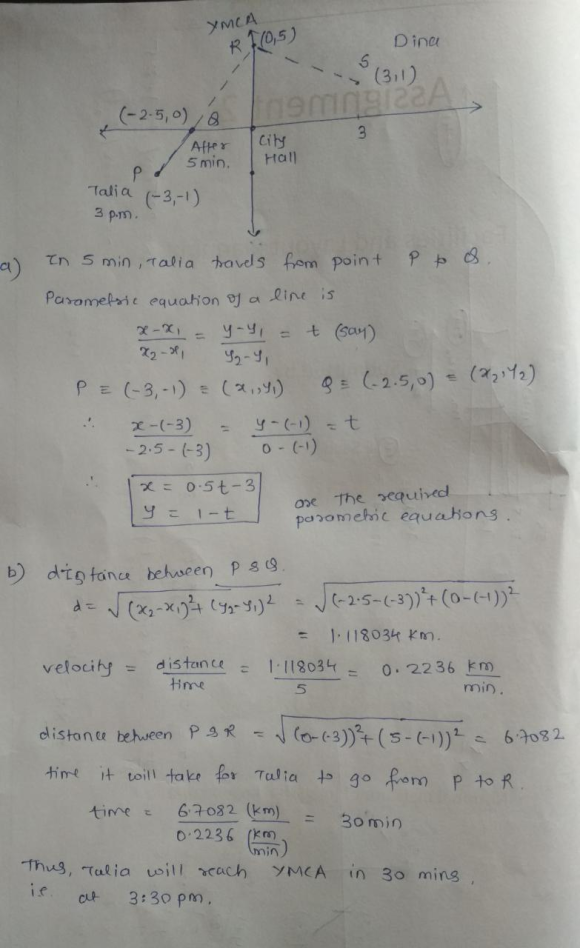 YMCA
R (0,5)
Dina
S
(3,1)
(-2.5,0) Q
After
5 min.
City
Hall
3
P
Talia (-3,-1)
3 p.m.
a) In 5 min, Talia travels from point P to Q.
Parametric equation of a line is
x-x₁/x₂-x₁ = y-y₁/y₂-y₁ = t (say)
P ≡ (-3,-1) ≡ (x₁,y₁) Q ≡ (-2.5,0) ≡ (x₂,y₂)
∴ x-(-3)/-2.5-(-3) = y-(-1)/0-(-1) = t
∴ x = 0.5t-3
y = 1-t
are the required
parametric equations.
b) distance between P & Q.
d = √(x₂-x₁)²+(y₂-y₁)² = √(-2.5-(-3))²+(0-(-1))²
= 1.118034 km.
velocity = distance/time = 1.118034/5 = 0.2236 km/min.
distance between P & R = √(0-(-3))²+(5-(-1))² = 6.7082
time it will take for Talia to go from P to R.
time = 6.7082 (km)/0.2236 (km/min) = 30 min
Thus, Talia will reach YMCA in 30 mins,
is at 3:30 pm.